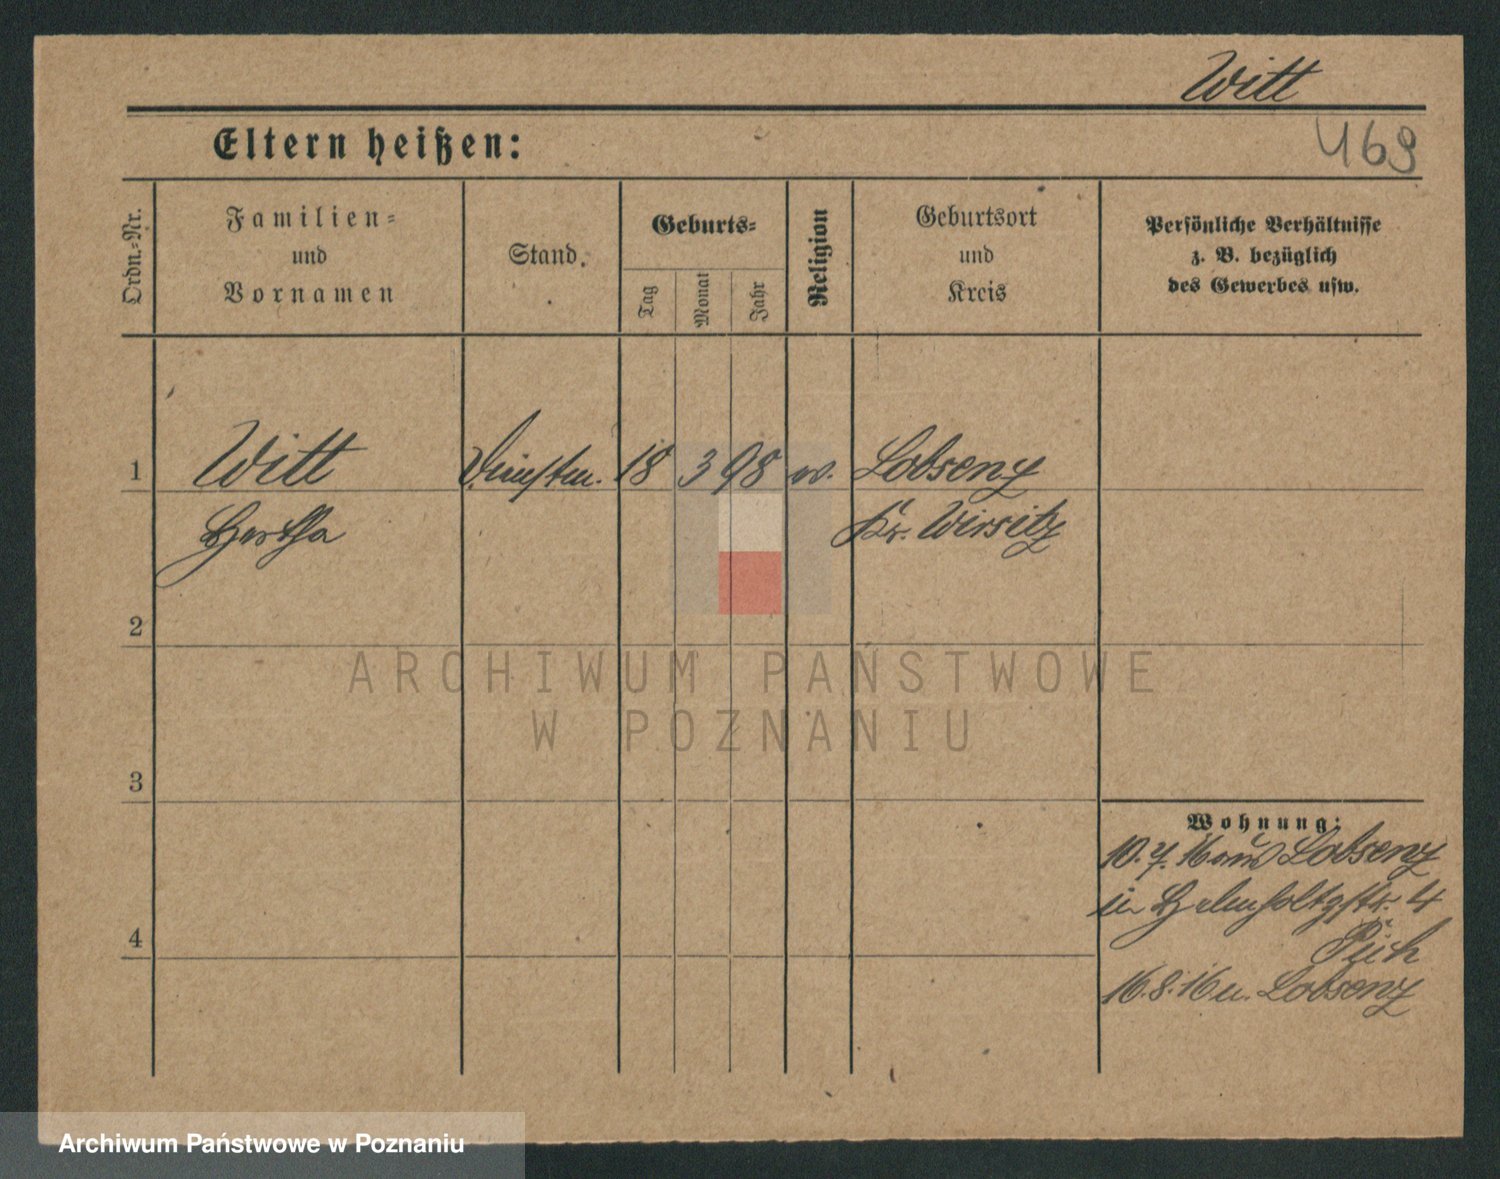 Witt
Eltern heißen:
469
Ordn.-Nr.
Familien-
und
Vornamen
Stand.
Geburts-
Tag
Monat
Jahr
Religion
Geburtsort
und
Kreis
Persönliche Verhältnisse
z. B. bezüglich
des Gewerbes usw.
1 Witt 18 3 98 Lobsens
Hertha Kr. Wirsitz
2
ARCHIWUM PAŃSTWOWE
W POZNANIU
3
Wohnung:
10.7.16 aus Lobsens
in Helmholtzstr. 4
4
16.8.16 n. Lobsens
Archiwum Państwowe w Poznaniu